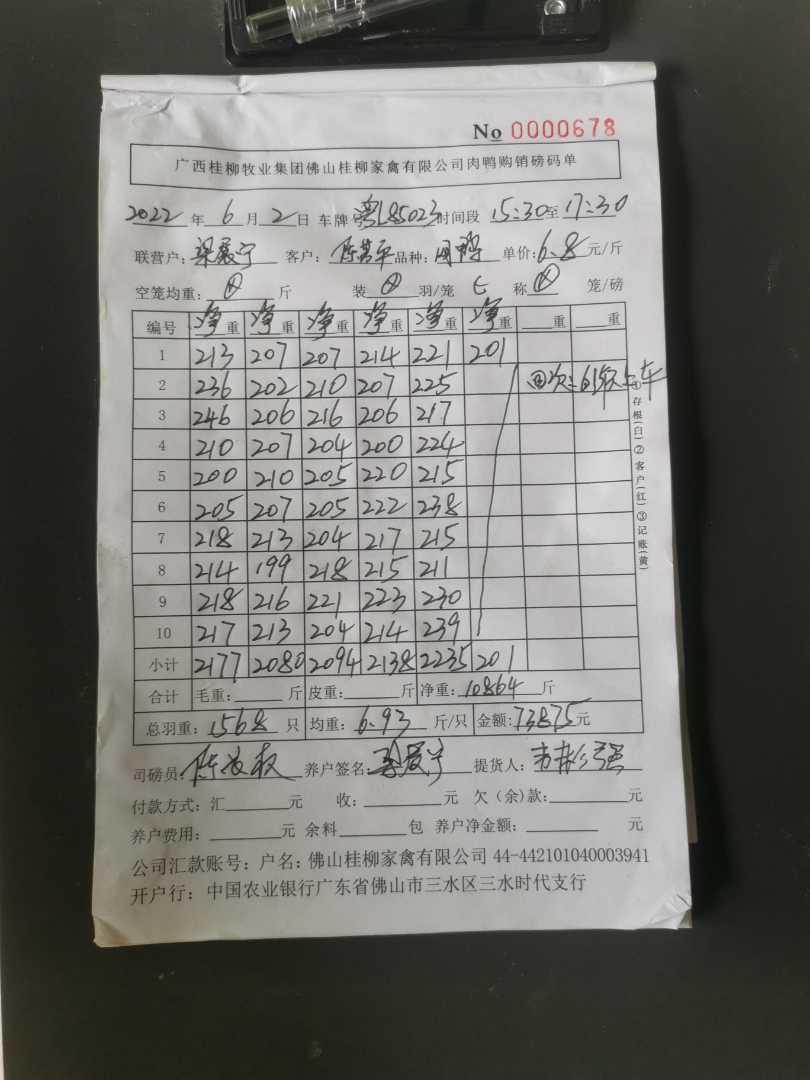 No 0000678
广西桂柳牧业集团佛山桂柳家禽有限公司肉鸭购销磅码单
2022年6月2日 车牌号粤L85023时间段 15:30至17:30
联营户: 梁展宁 客户: 品种: 单价:6.8元/斤
空笼均重: ④ 斤 装 ④ 羽/笼 七 称 ④ 笼/磅
编号 净重 净重 净重 净重 净重 净重 重 重
1 213 207 207 214 221 201
2 236 202 210 207 225
3 246 206 216 206 217
4 210 207 204 200 224
5 200 210 205 220 215
6 205 207 205 222 238
7 218 213 204 217 215
8 214 199 218 215 211
9 218 216 221 223 230
10 217 213 204 214 239
小计 2177 2080 2094 2138 2235 201
合计 毛重: 斤 皮重: 斤 净重: 10864 斤
总羽重: 1568 只 均重: 6.93 斤/只 金额: 73875元
①存根(白)②客户(红)③记账(黄)
司磅员: 养户签名: 梁展宁 提货人:
付款方式: 汇 元 收: 元 欠(余)款: 元
养户费用: 元 余料 包 养户净金额: 元
公司汇款账号: 户名: 佛山桂柳家禽有限公司 44-442101040003941
开户行: 中国农业银行广东省佛山市三水区三水时代支行